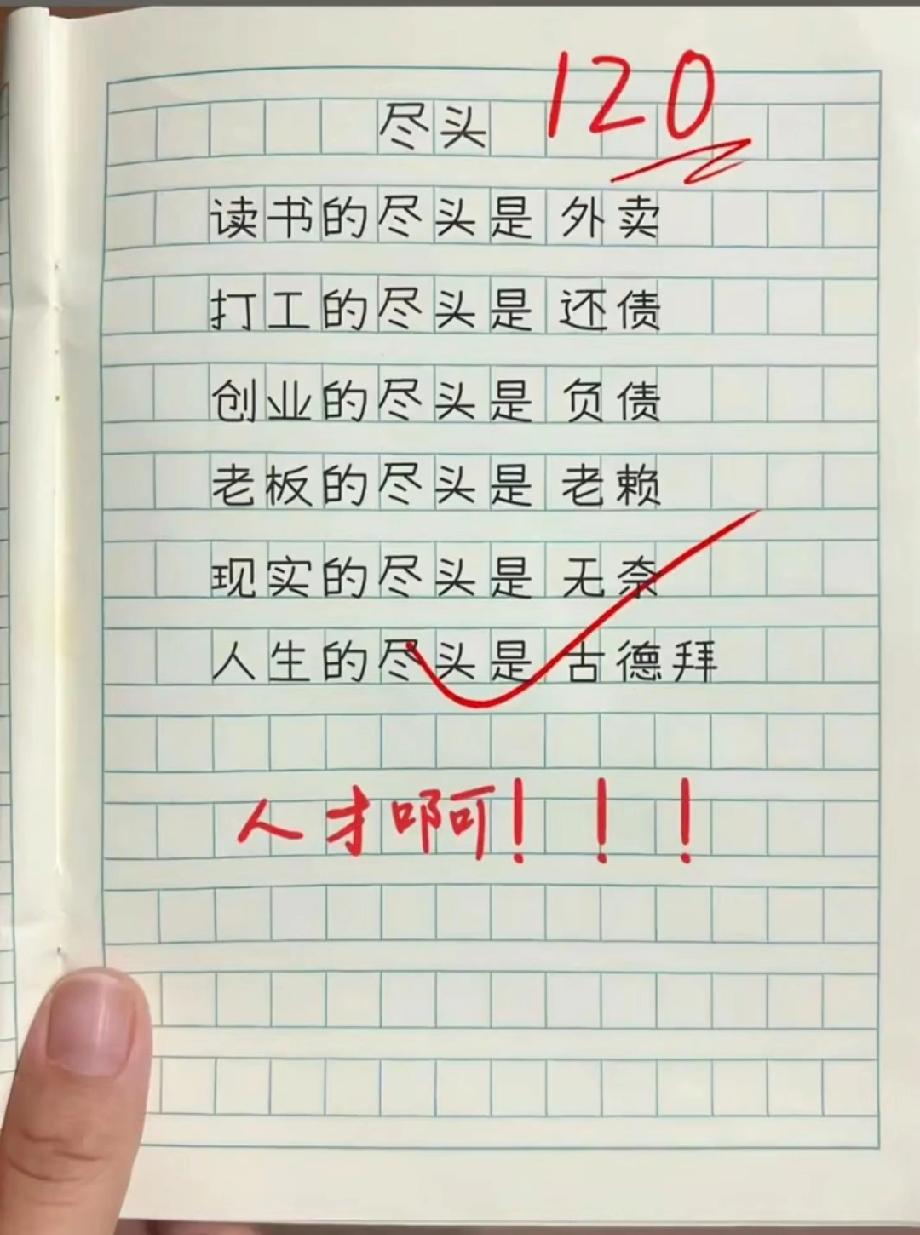 尽头 120
读书的尽头是 外卖
打工的尽头是 还债
创业的尽头是 负债
老板的尽头是 老赖
现实的尽头是 无奈
人生的尽头是 古德拜
人才啊！！！